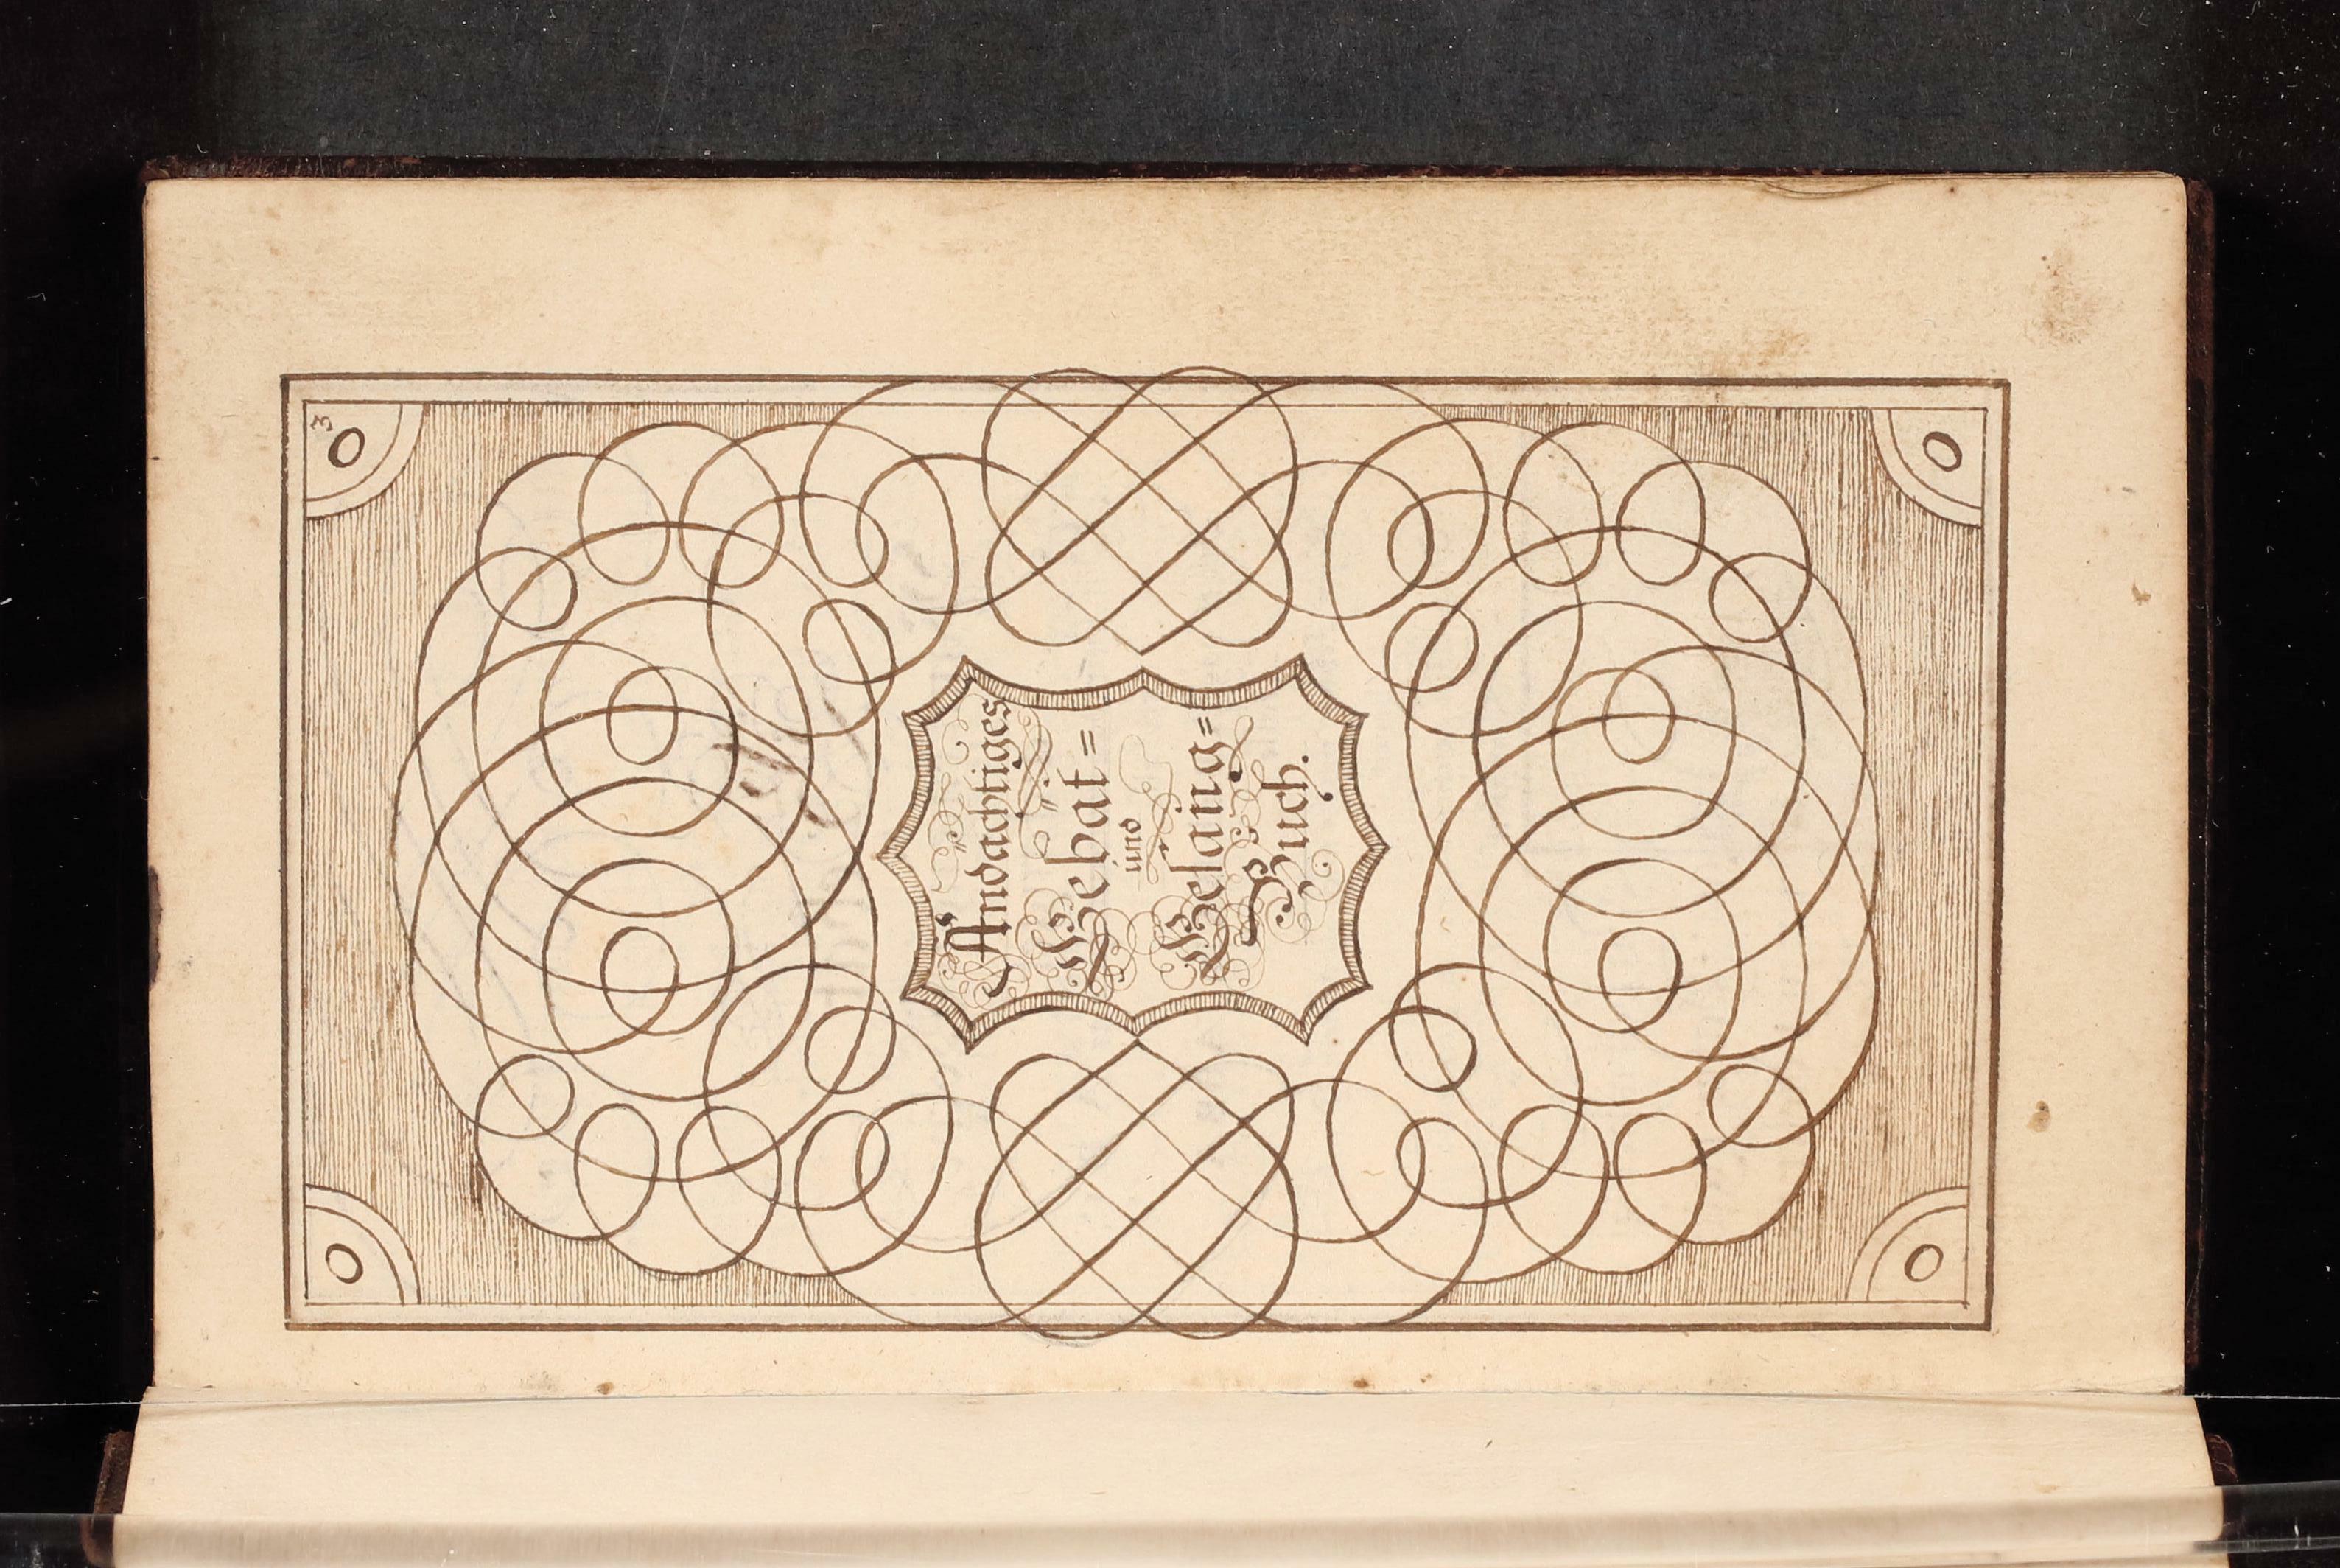 3
Andächtiges
Gebät=
und
Gesäng=
Buch.